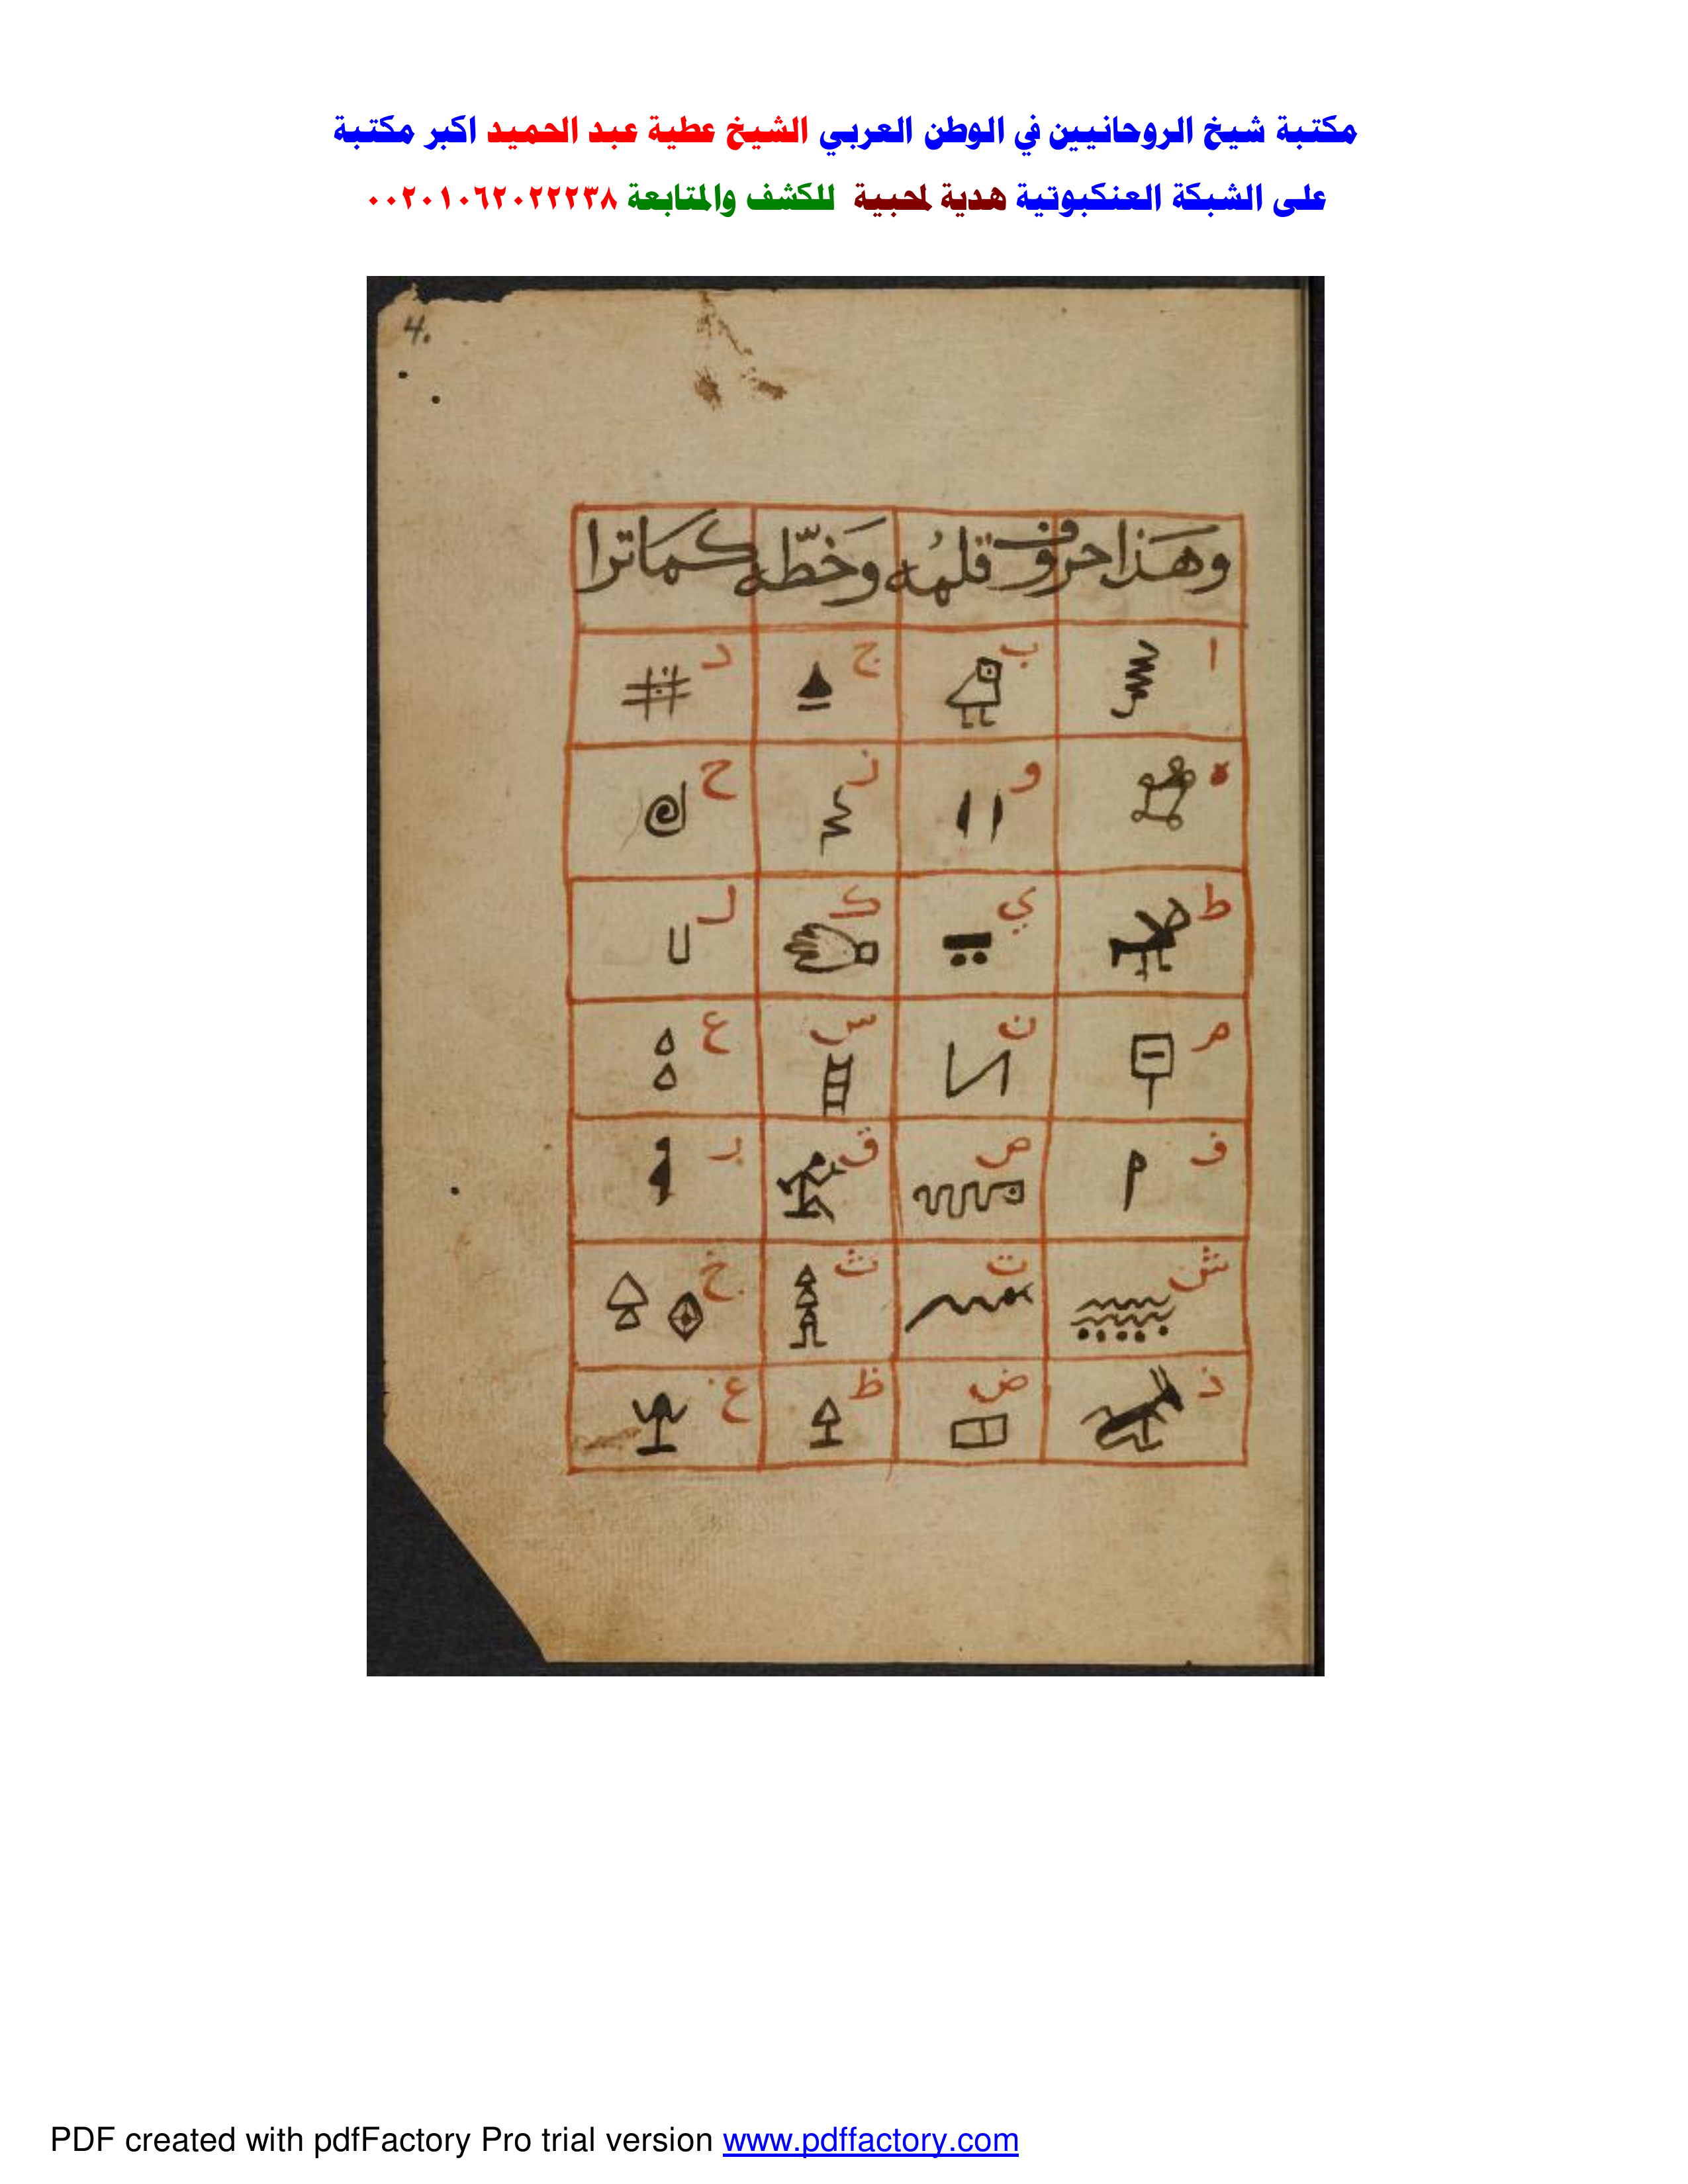 مكتبة شيخ الروحانيين في الوطن العربي الشيخ عطية عبد الحميد اكبر مكتبة
على الشبكة العنكبوتية هدية لمحبيه للكشف والمتابعة ٠٠٢٠١٠٦٢٠٢٢٢٣٨
4.
وهَذا حروف قلمُه وَخَطّه كمَا ترا
ا ب ج د
ه و ز ح
ط ي ك ل
م ن س ع
ف ص ق ر
ش ت ث خ
ذ ض ظ غ
PDF created with pdfFactory Pro trial version www.pdffactory.com